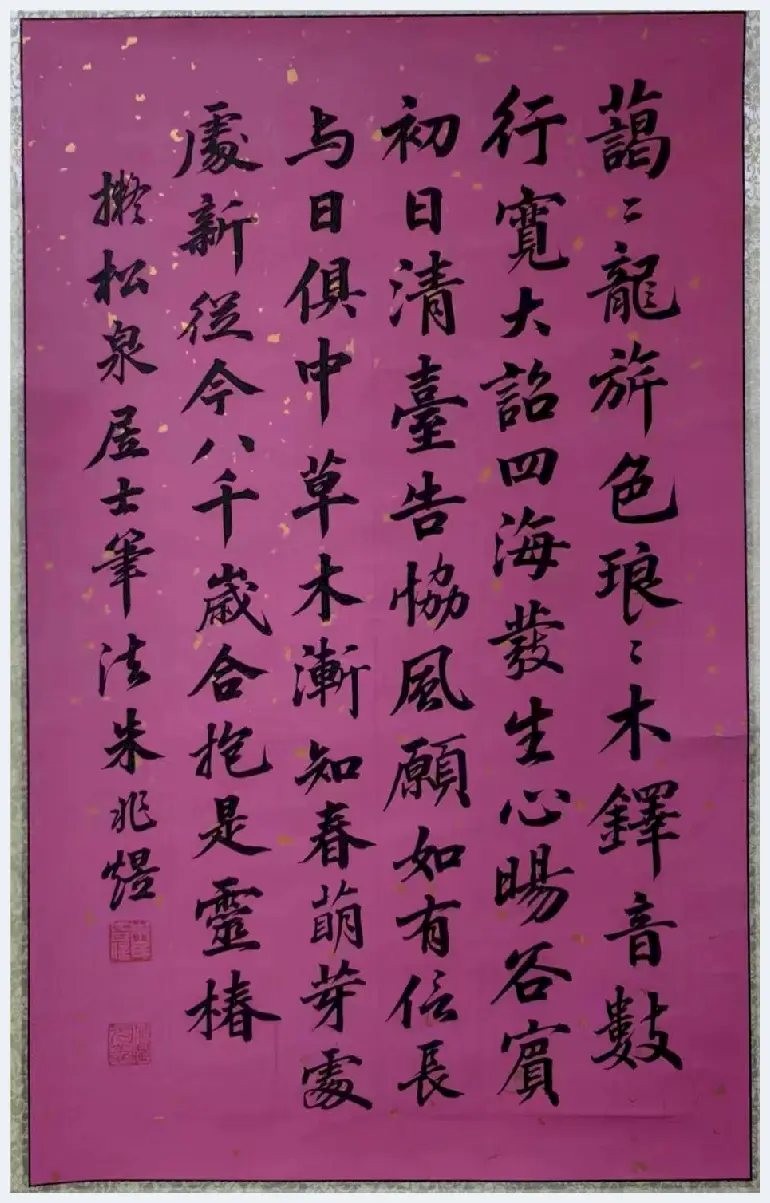 藹〻龍旂色琅〻木鐸音數
行寬大詔四海發生心暘谷賓
初日清臺告恊風願如有信長
与日俱中草木漸知春萌芽處
處新從今八千歲合抱是靈椿
擬松泉居士筆法朱兆熤